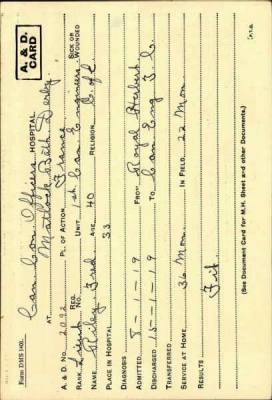 Form DMS 1400.
A. & D. CARD
Can. Con. Officers HOSPITAL
AT Matlock Bath Derby.
A. & D. No. 2092 Pl. of Action France
Rank Lieut Reg. No. Unit 1st Can Engineers Sick or Wounded
Name Riley Fred. Age 40 Religion C of E
Place in Hospital 33
Diagnosis
Admitted 8-1-19 From Royal Herbert
Discharged 15-1-19 To Can Eng
Transferred
Service at Home 36 Mon. In Field 22 Mon
Results Fit.
(See Document Card for M.H. Sheet and other Documents.)
[P.T.O.